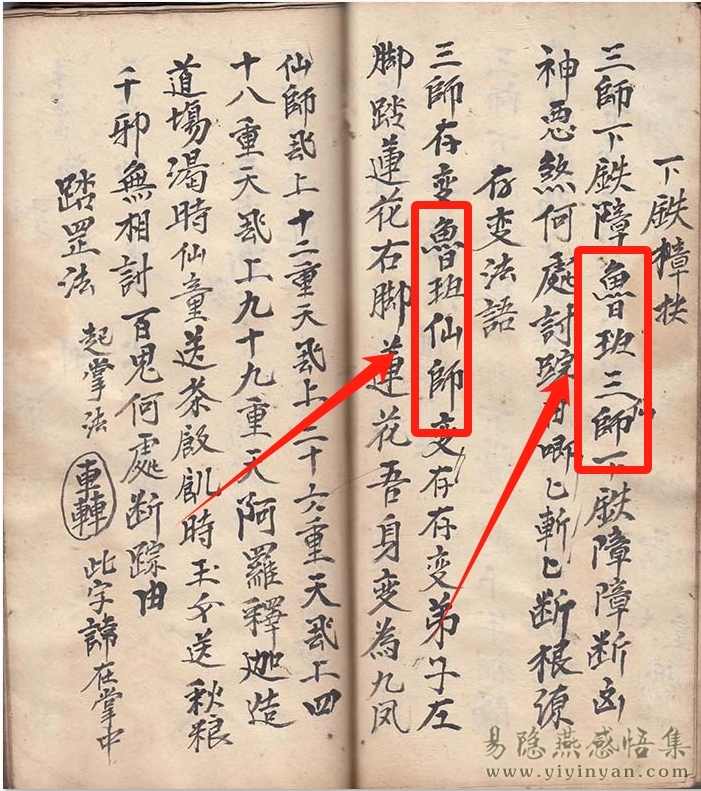 下鉄樟抶
三師下鉄障魯班三師下鉄障障断凶
神恶煞何處討踪由唧匕斬匕断根源
存变法語
三師存变魯班仙師变存存变弟子左
脚踏蓮花右脚蓮花吾身变為九凤
仙師飛上十二重天飛上二十六重天飛上四
十八重天飛上九十九重天阿羅釋迦造
道場渴時仙童送茶飯飢時玉女送秋粮
千邪無相討百鬼何處断踪由
踏罡法 起掌法 此字諱在掌中
易隐燕感悟集
www.yiyinyan.com